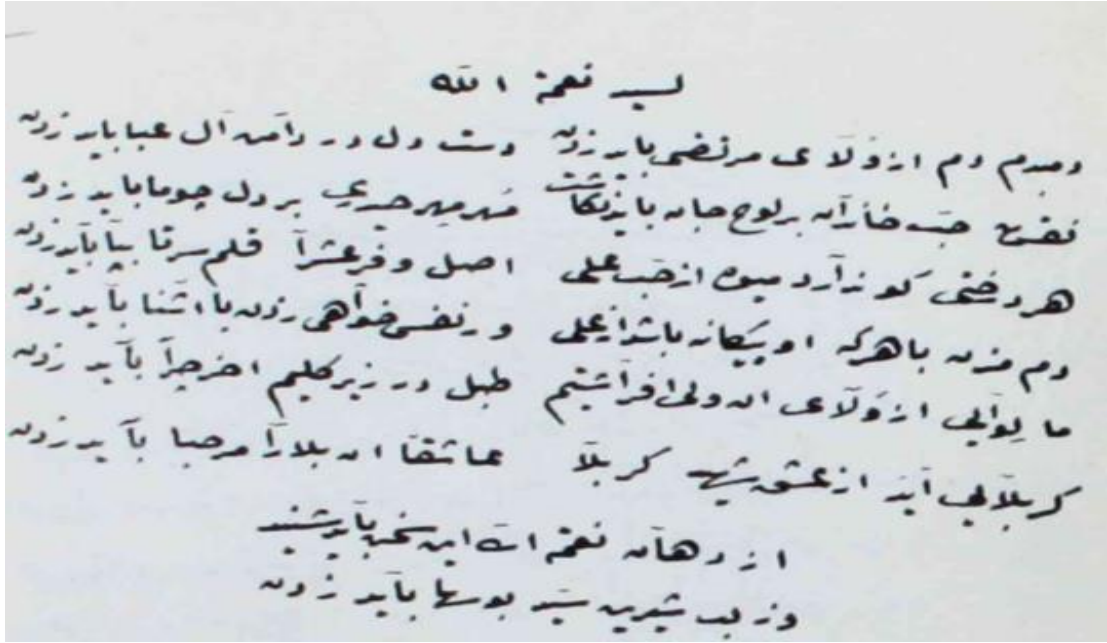 لسید نعمة الله
دمبدم دم از وَلای مرتضی باید زدن دست دل در دامن آل عبا باید زدن
نقش حبّ خاندان بر لوح جان باید نگاشت مُهر مِهر حیدری بر دل چو ما باید زدن
هر درختی کو ندارد میوه از حبّ علی اصل و فرعش را قلم سر تا بپا باید زدن
دم مزن با هر که او بیگانه باشد از علی ور نفس خواهی زدن با اشنا باید زدن
ما لِوایی از وَلای ان ولی افراشتیم طبل در زیر کلیم اخر چرا باید زدن
کربلایی آید از عشق شهید کربلا عاشقا ان بلا را مرحبا باید زدن
از دهان نعمة الله این سخن باید شنید
وز لب شیرین سیّد بوسها باید زدن